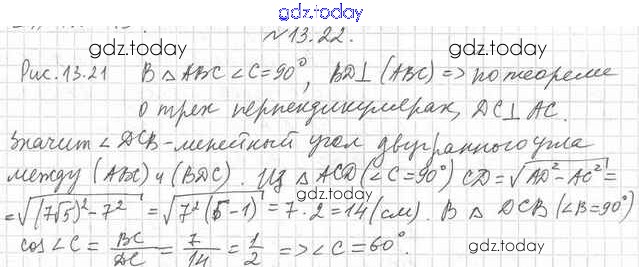 gdz.today
№13.22.
gdz.today gdz.today
Рис. 13.21 В △ABC ∠C=90°, BD⊥(ABC) => по теореме
о трех перпендикулярах, DC⊥AC.
Значит ∠DCB - линейный угол двугранного угла
между (ABC) и (BDC). Из △ACD (∠C=90°) CD=√AD²-AC²=
gdz.today
=√(7√5)²-7² = √7²(5-1) = 7·2=14(см). В △ DCB (∠B=90°)
cos∠C = BC/DC = 7/14 = 1/2 => ∠C=60°.
gdz.today